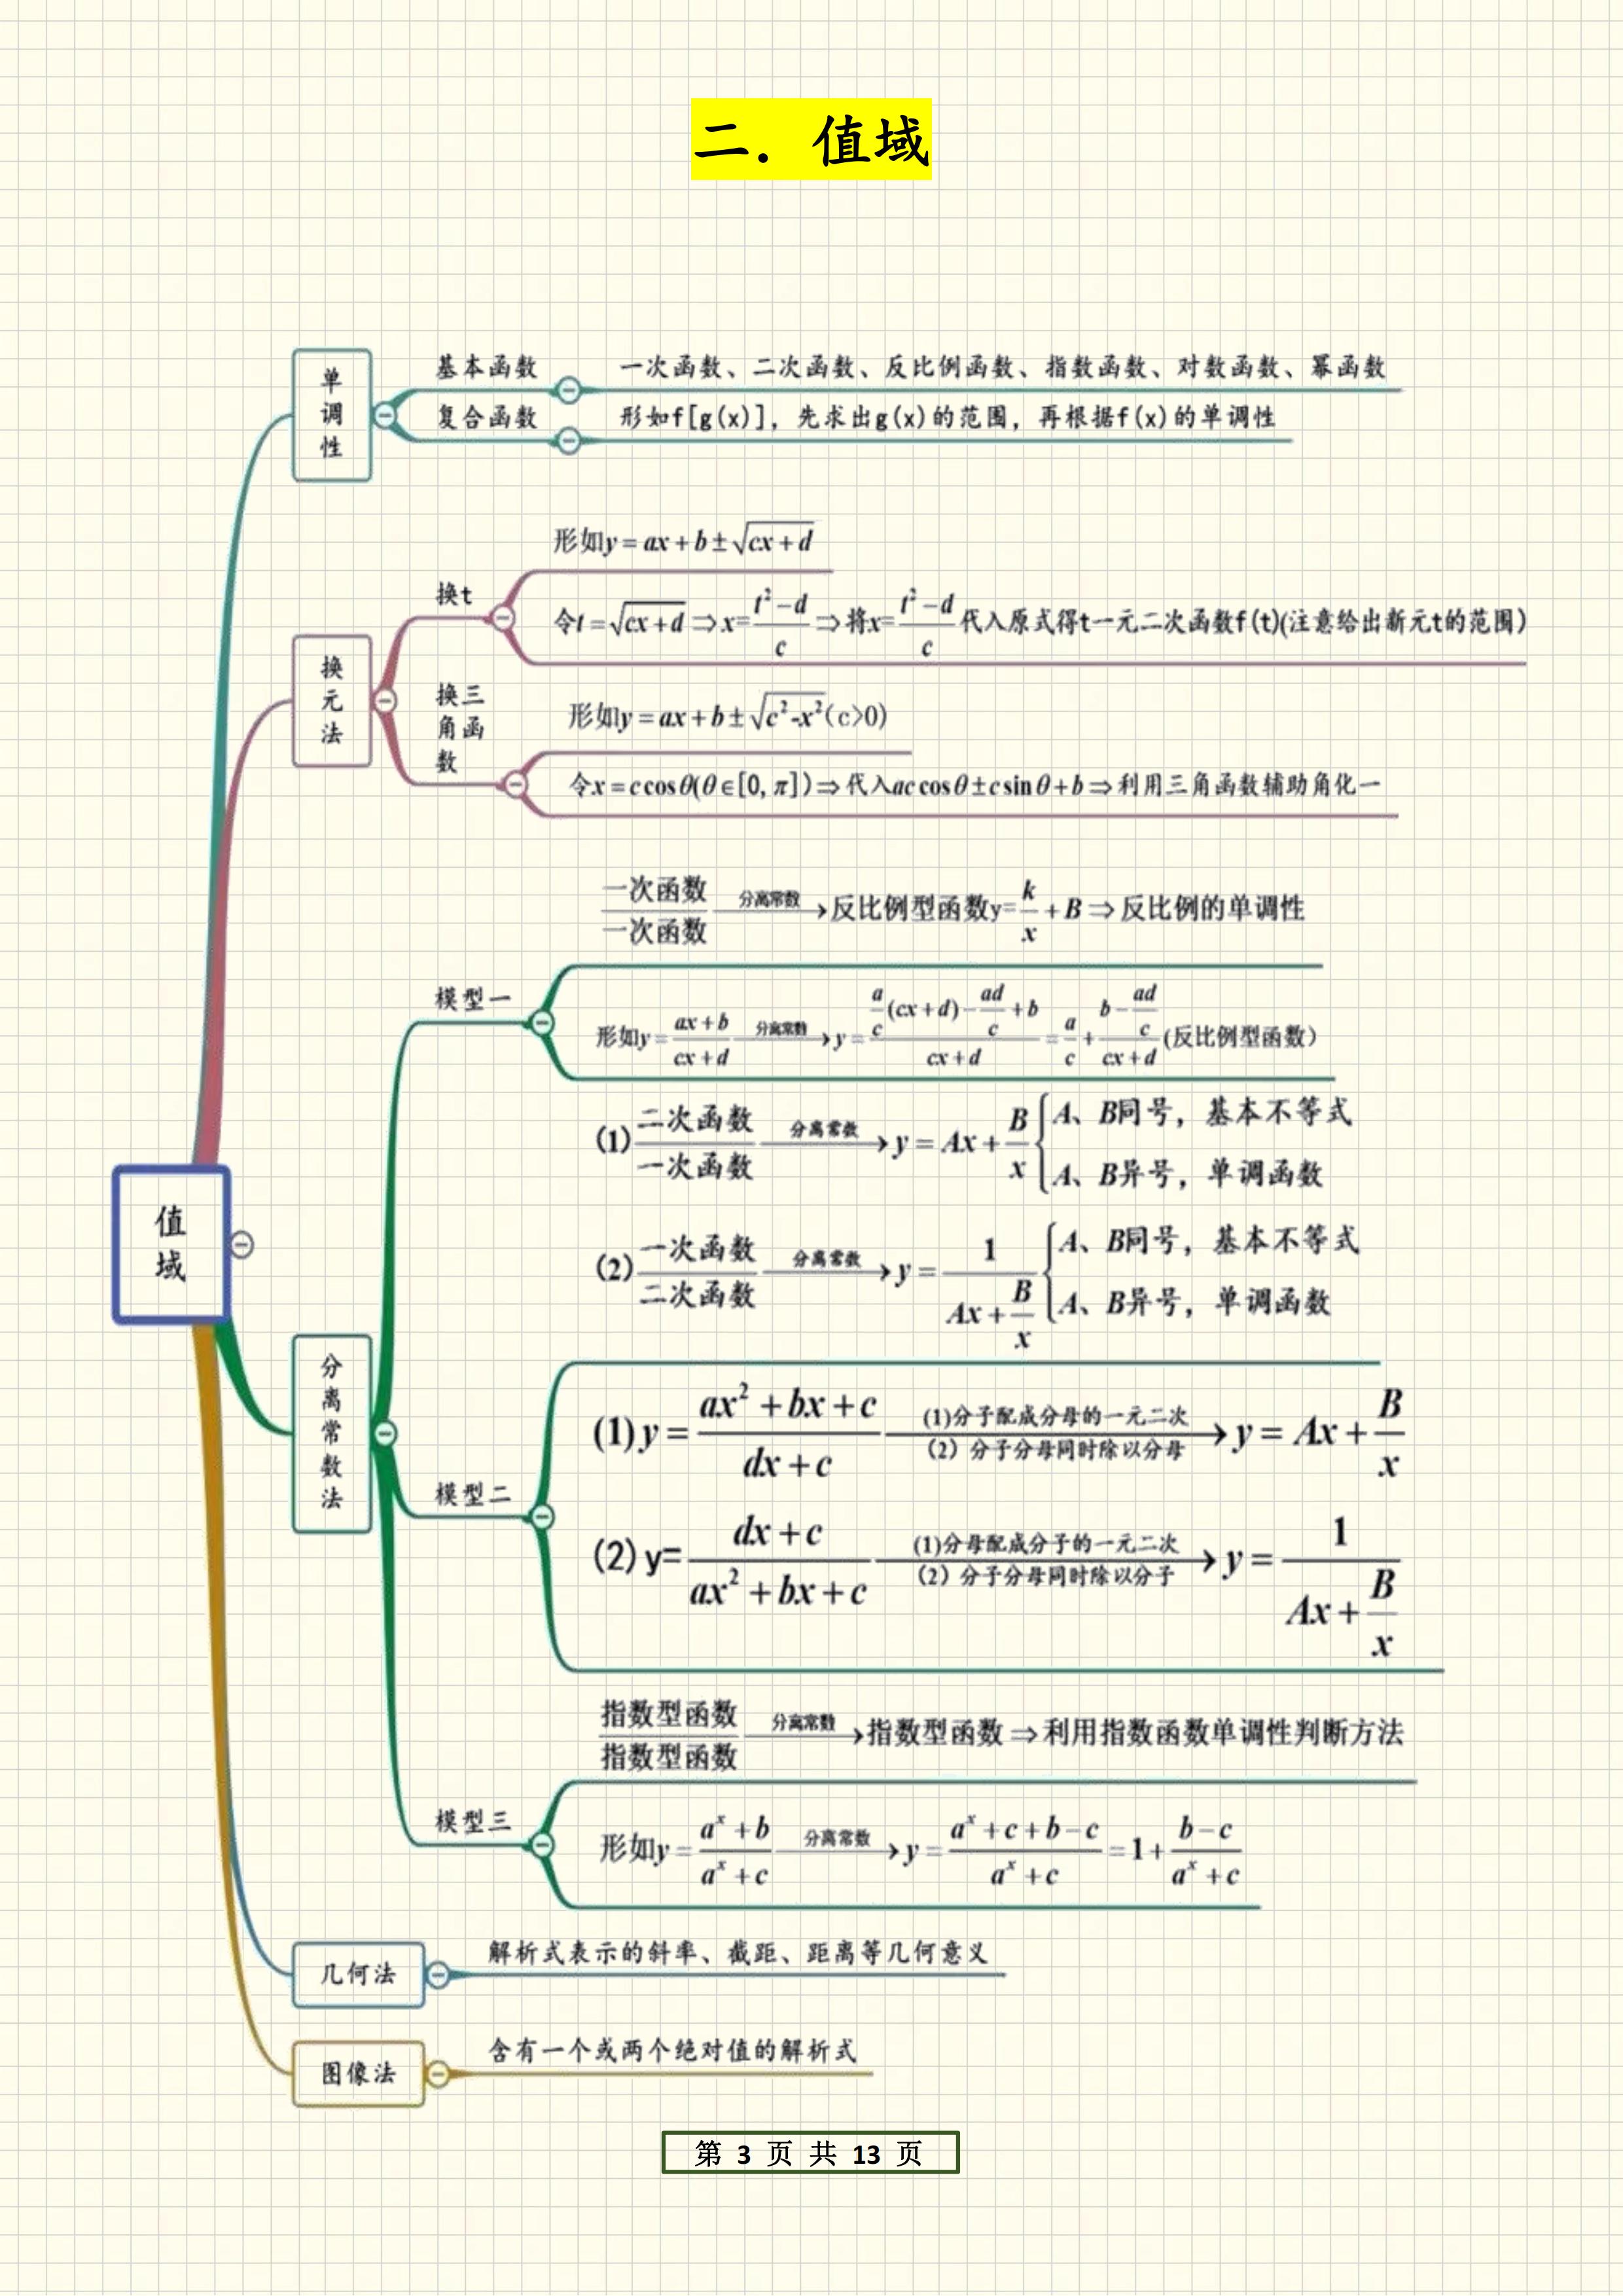 二. 值域
单调性
基本函数
一次函数、二次函数、反比例函数、指数函数、对数函数、幂函数
复合函数
形如f[g(x)], 先求出g(x)的范围, 再根据f(x)的单调性
换元法
换t
形如y=ax+b±√(cx+d)
令t=√(cx+d)⇒x=(t²−d)/c⇒将x=(t²−d)/c代入原式得t一元二次函数f(t)(注意给出新元t的范围)
换三角函数
形如y=ax+b±√(c²-x²)(c>0)
令x=c cosθ(θ∈[0, π])⇒代入ac cosθ±c sinθ+b⇒利用三角函数辅助角化一
值域
分离常数法
模型一
一次函数/一次函数 分离常数→反比例型函数y=k/x+B⇒反比例的单调性
形如y=(ax+b)/(cx+d) 分离常数→y=(a/c(cx+d)−ad/c+b)/(cx+d)=a/c+(b−ad/c)/(cx+d)(反比例型函数)
模型二
(1)二次函数/一次函数 分离常数→y=Ax+B/x{A、B同号, 基本不等式
A、B异号, 单调函数
(2)一次函数/二次函数 分离常数→y=1/(Ax+B/x){A、B同号, 基本不等式
A、B异号, 单调函数
(1)y=(ax²+bx+c)/(dx+c) (1)分子配成分母的一元二次 (2)分子分母同时除以分母→y=Ax+B/x
(2)y=(dx+c)/(ax²+bx+c) (1)分母配成分子的一元二次 (2)分子分母同时除以分子→y=1/(Ax+B/x)
模型三
指数型函数/指数型函数 分离常数→指数型函数⇒利用指数函数单调性判断方法
形如y=(aˣ+b)/(aˣ+c) 分离常数→y=(aˣ+c+b−c)/(aˣ+c)=1+(b−c)/(aˣ+c)
几何法
解析式表示的斜率、截距、距离等几何意义
图像法
含有一个或两个绝对值的解析式
第 3 页 共 13 页